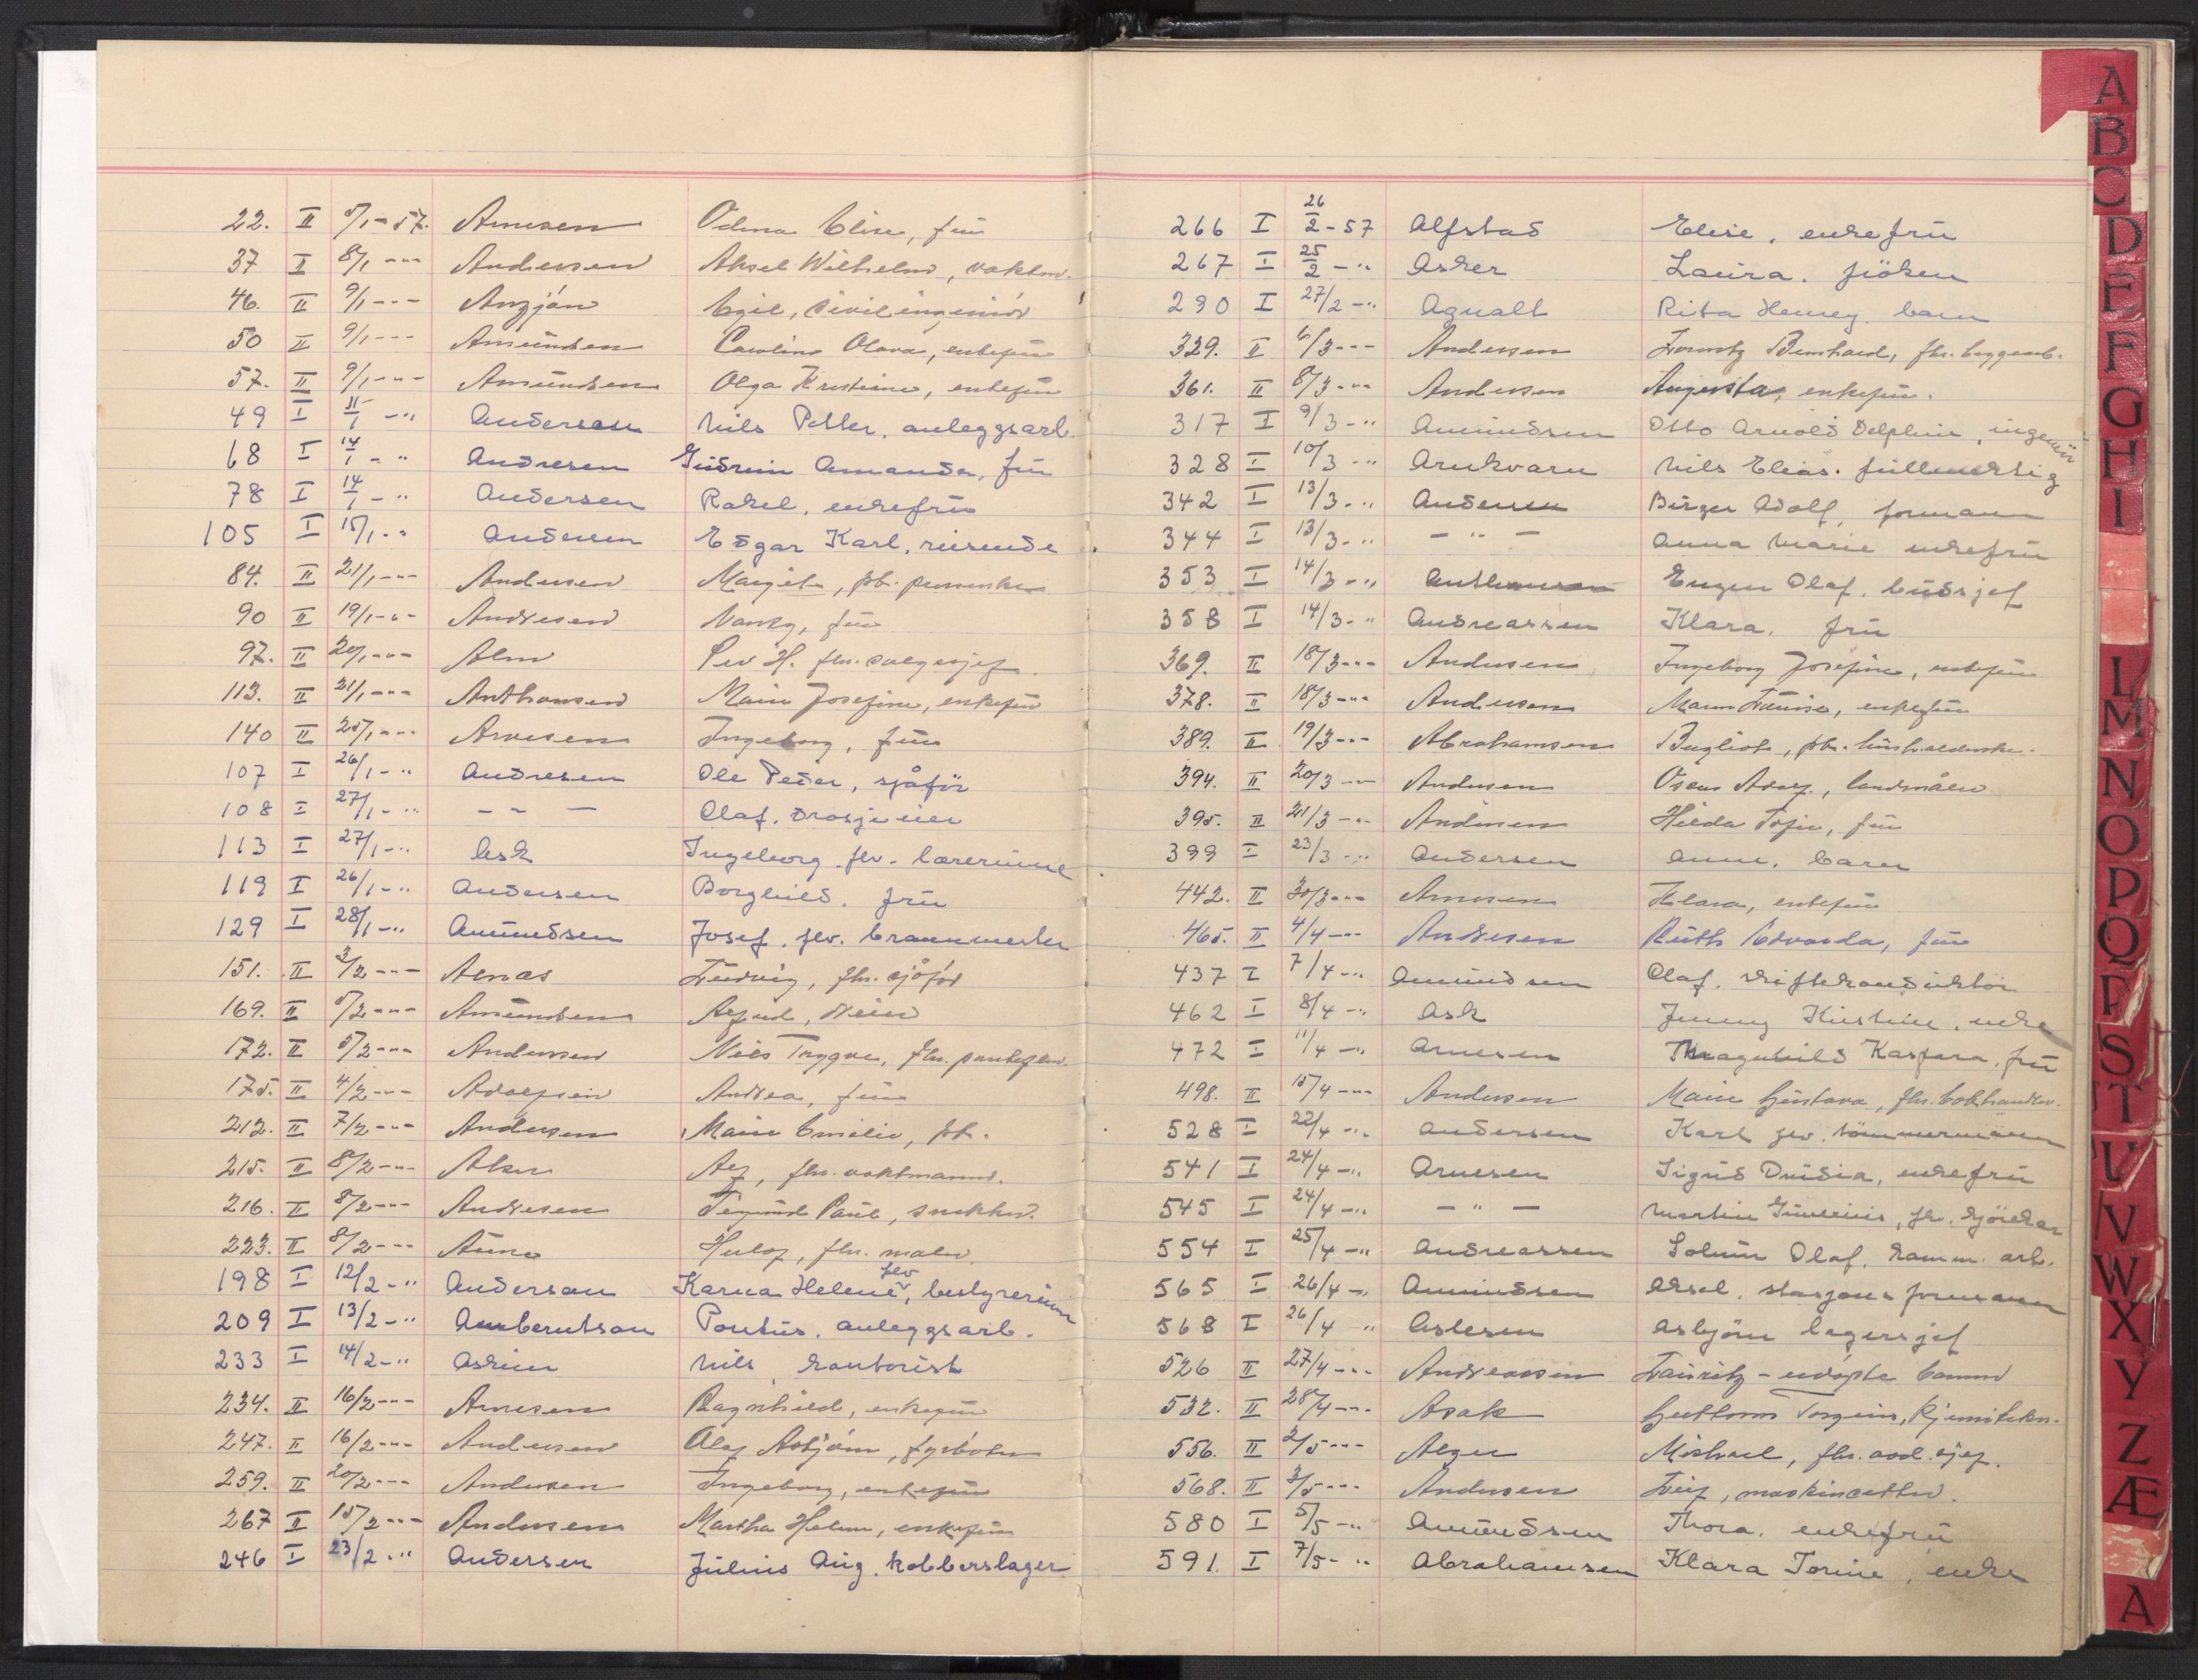 22. II 5/1-57. Arnesen Odina Elise, frü
37 II 8/1 -"- Andersen Aksel Wilhelm, vaktm.
46. II 9/1 -"- Anzjön Egil, sivilingeniör
50 II 9/1 -"- Amündsen Caroline Olava, enkefrü
57. II 9/1 -"- Amündsen Olga Kristine, enkefrü
49 I 11/1 -" Anderson Nils Petter, anleggsarb.
68 I 14/1 -" Andresen Güdrün Amanda, frü
78 I 14/1 -" Andersen Rakel, enkefrü
105 I 15/1 -" Andersen Edgar Karl, reisende
84. II 21/1 -"- Andersen Margit, pb.
90 II 19/1 -"- Andresen Nanny, frü
97. II 20/1 -"- Alm Per H. fhv. salgssjef
113. II 21/1 -"- Anthonsen Marie Josefine, enkefrü
140 II 25/1 -"- Arnesen Ingeborg, frü
107 I 26/1 -" Andresen Ole Peder, sjåför
108 I 27/1 -" - " - Olaf. drosjeeier
113 I 27/1 -" Ask Ingeborg. fhv. lærerinne
119 I 26/1 -" Andersen Borghild. frü
129 I 28/1 -" Amündsen Josef. fhv. brannmester
151. II 3/2 -"- Arnas Lüdvig, fhv. sjåför
169. II 5/2 -"- Amündsen Alfred,
172. II 5/2 -"- Andersen Nils Trygve, fhv.
175. II 4/2 -"- Adolfsen Andrea, frü
212. II 7/2 -"- Andersen Marie Emilie, pb.
215. II 8/2 -"- Alm Alf, fhv. vaktmann.
216. II 8/2 -"- Andresen Sigünd Paül, snekker.
223. II 8/2 -"- Aüne Herlof, fhv. maler
198 I 12/2 -" Anderson Karna Helene, fhv bestyrerinne
209 I 13/2 -" Annberntson Pontüs. anleggsarb.
233 I 14/2 -" Askim Nils, kontorist
234. II 16/2 -"- Arnesen Ragnhild, enkefrü
247. II 16/2 -"- Andersen Olaf Asbjörn, fyrböter
259. II 20/2 -"- Andersen Ingeborg, enkefrü
267 II 15/2 -"- Andersen Martha Helene, enkefrü
246 I 23/2 -" Andersen Jülius Aüg. kobberslager
266 I 26/2 - 57 Alfstad Elise, enkefrü
267 I 25/2 -" Asker Laüra. fröken
290 I 27/2 -" Agnalt Rita Henny. barn
329. II 6/3 -"- Andersen Lorentz Bernhard, fhv. byggearb.
361. II 8/3 -"- Andersen Aügüsta, enkefrü.
317 I 9/3 -" Amündsen Otto Arnold Delphin, ingeniör
328 I 10/3 -" Arnkværn Nils Elias. füllmektig
342 I 13/3 -" Andersen Birger Adolf, formann
344 I 13/3 -" - " - Anna Marie enkefrü
353 I 14/3 -" Anthonsen Eugen Olaf. büdsjef
358 I 14/3 -" Andreassen Klara. frü
369. II 18/3 -"- Andersen Ingeborg Josefine, enkefrü
378. II 18/3 -"- Andersen Maren Loüise, enkefrü
389. II 19/3 -"- Abrahamsen Bergliot, pb. hüsholderske.
394. II 20/3 -"- Andersen Oscar Adolf, landmåler
395. II 21/3 -"- Andersen Hilda Sofie, frü
399 I 23/3 -" Andersen Anne, barn
442. II 30/3 -"- Arnesen Klara, enkefrü
465. II 4/4 -"- Andresen Rüth Edvarda, frü
437 I 7/4 -" Amündsen Olaf. skiftekondüktör
462 I 8/4 -" Ask Jenny Kirstine. enke
472 I 11/4 -" Arnesen Magnhild Kaspara, frü
498. II 15/4 -"- Andersen Marie Güstava, fhv. bokhandler.
528 I 22/4 -" Andersen Karl fhv. tömmermann
541 I 24/4 -" Arnesen Sigrid Düsia, enkefrü
545 I 24/4 -" - " - Martin fhv.
554 I 25/4 -" Andreassen Solüm Olaf. komm. arb.
565 I 26/4 -" Amündsen Aksel, stasjonsformann
568 I 26/4 -" Aslesen Asbjörn lagersjef
526 II 27/4 -"- Andreassen Laüritz - üdöpte barn
532. II 28/4 -"- Asak Güttorm Torgeir,
556. II 2/5 -"- Alger Michael, fhv. avd.sjef.
568. II 3/5 -"- Andersen Leif, maskinsetter.
580 I 5/5 -" Amündsen Thora. enkefrü
591. I 7/5 -" Abrahamsen Klara Torine, enke
A
B
C
D
E
F
G
H
I
L
M
N
O
P
Q
R
S
T
U
V
W
X
Y
Z
Æ
A